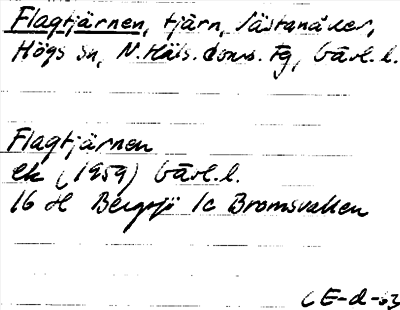 Flagtjärnen, tjärn, Västanåker,
Högs sn, N. Häls. doms. Fg, Gävl. l.
Flagtjärnen
ek (1959) Gävl. l.
16 H Bergsjö 1c Bromsvallen
CE-d-63